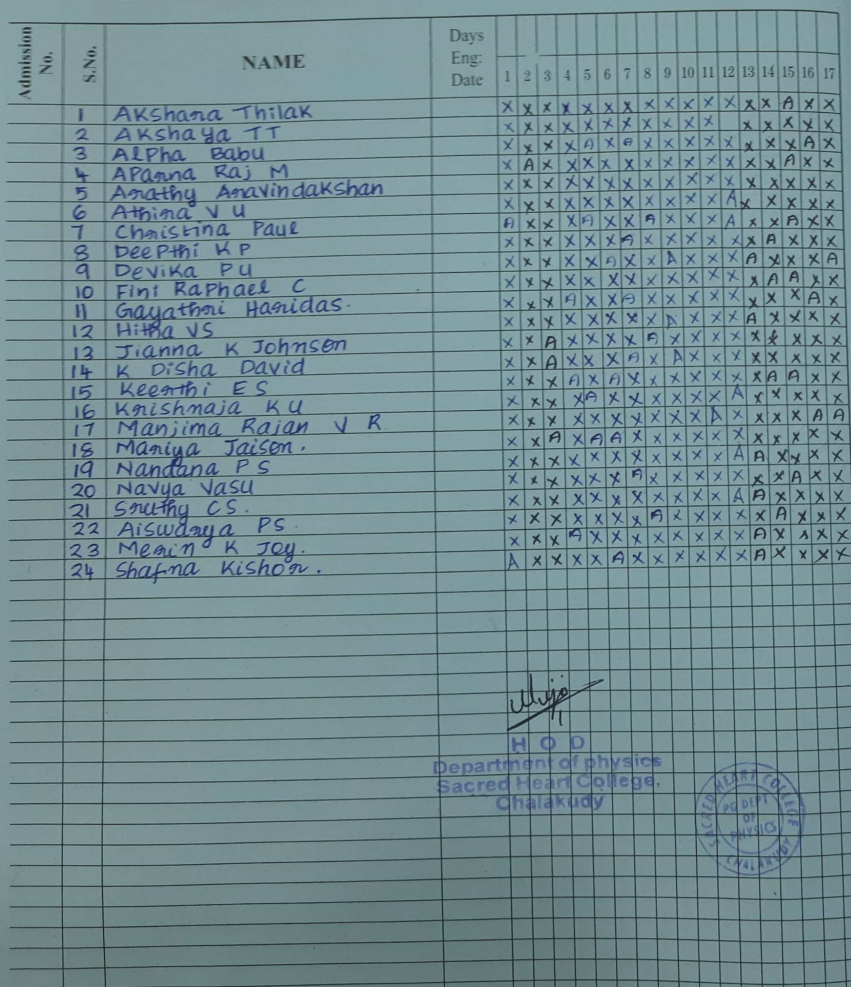 Admission No. S.No. NAME Days Eng: Date 1 2 3 4 5 6 7 8 9 10 11 12 13 14 15 16 17
1 Akshara Thilak X X X X X X X X X X X X X X A X X
2 Akshaya TT X X X X X X X X X X X X X X X X
3 Alpha Babu X X X X A X A X X X X X X X X A X
4 Aparna Raj M X A X X X X X X X X X X X X A X X
5 Arathy Aravindakshan X X X X X X X X X X X X X X X X X
6 Athira V U X X X X X X X X X X X A X X X X X
7 Christina Paul A X X X A X X A X X X A X X A X X
8 Deepthi K P X X X X X X A X X X X X X A X X X
9 Devika P U X X X X X A X X A X X X A X X X A
10 Fini Raphael C X X X X X X X X X X X X X A A X X
11 Gayathri Haridas. X X X A X X A X X X X X X X X A X
12 Hitha VS X X X X X X X X A X X X A X X X X
13 Jianna K Johnson X X A X X X X A X X X X X X X X X
14 K Disha David X X A X X X A X A X X X X X X X X
15 Keerthi E S X X X A X A X X X X X X X A A X X
16 Krishnaja K U X X X X A X X X X X X A X X X X X
17 Manjima Rajan V R X X X X X X X X X X A X X X X A A
18 Mariya Jaison. X X A X A A X X X X X X X X X X X
19 Nandana P S X X X X X X X X X X X A A X X X X
20 Navya Vasu X X X X X X A X X X X X X X A X X
21 Sruthy CS. X X X X X X X X X X X A A X X X X
22 Aiswarya PS. X X X X X X X A X X X X X A X X X
23 Merin K Joy. X X X A X X X X X X X X A X X X X
24 Shafna Kishor. A X X X X A X X X X X X A X X X X
HOD
Department of physics
Sacred Heart College,
Chalakudy
SACRED HEART COLLEGE
PG DEPT
OF
PHYSICS
CHALAKUDY